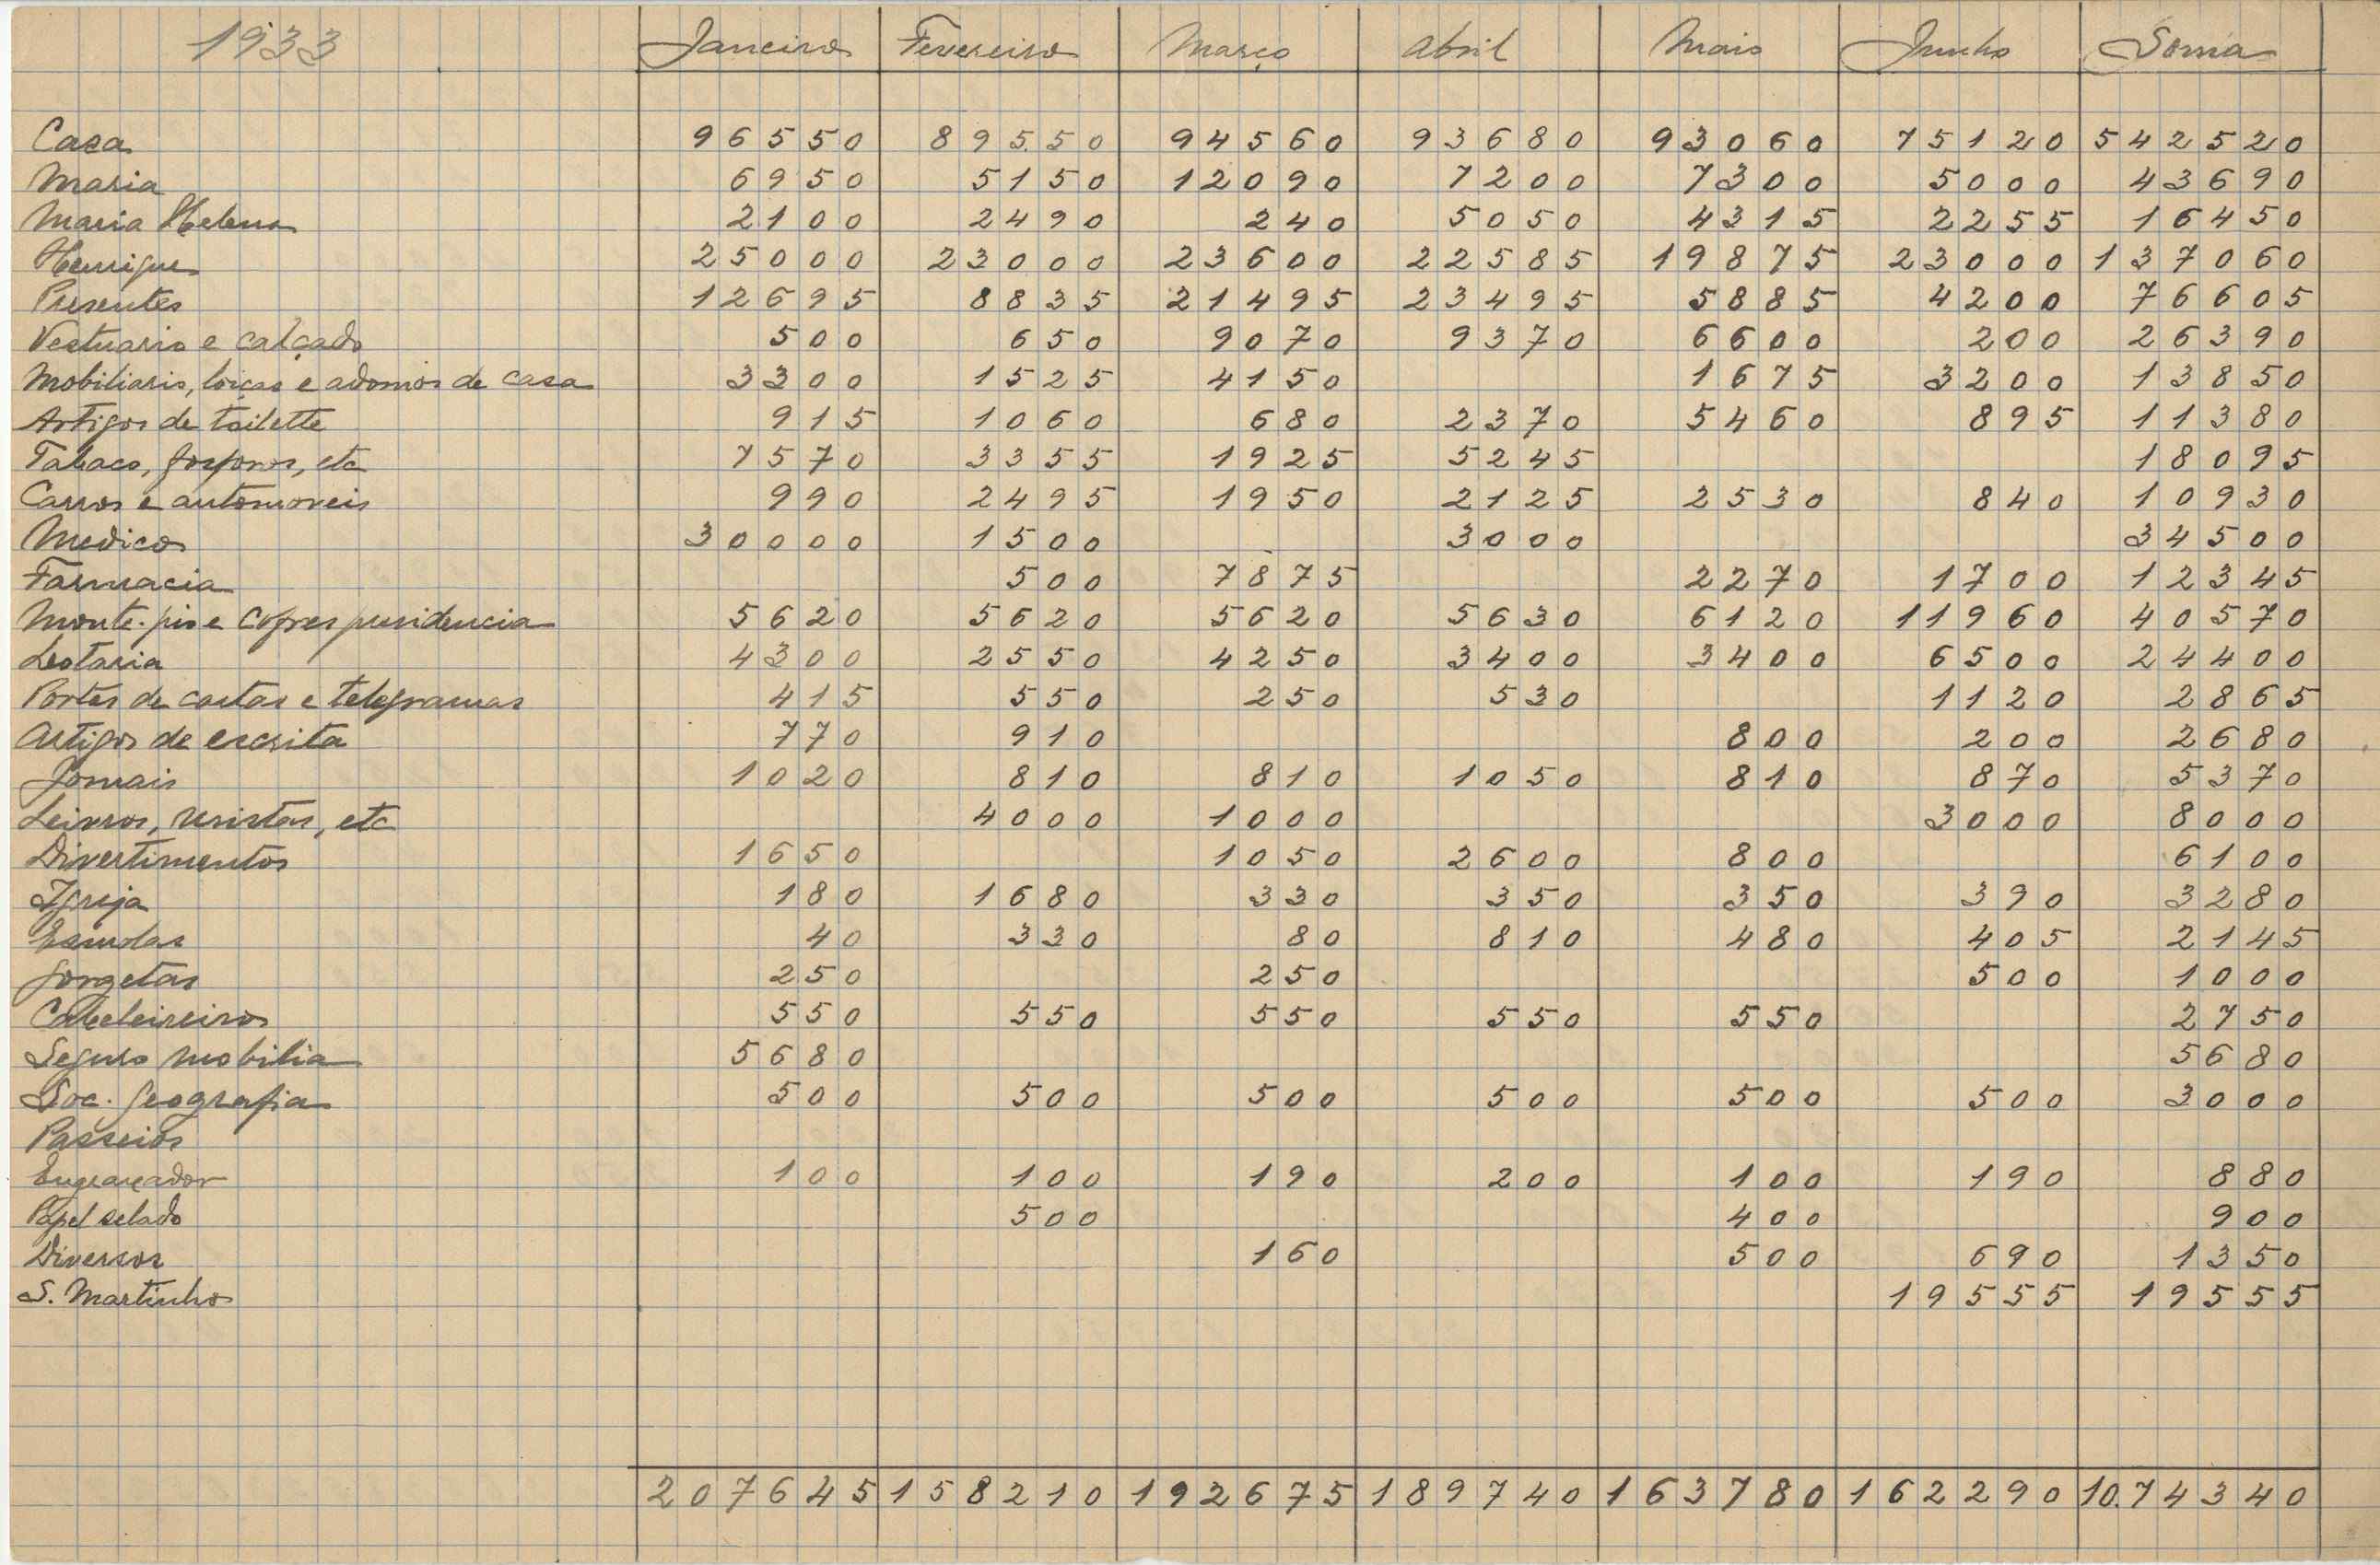 1933 Janeiro Fevereiro Março Abril Maio Junho Soma
Casa 96550 89550 94560 93680 93060 75120 542520
Maria 6950 5150 12090 7200 7300 5000 43690
Maria Helena 2100 2490 240 5050 4315 2255 16450
Henrique 25000 23000 23600 22585 19875 23000 137060
Presentes 12695 8835 21495 23495 5885 4200 76605
Vestuario e calçado 500 650 9070 9370 6600 200 26390
Mobiliario, loiças e adornos de casa 3300 1525 4150 1675 3200 13850
Artigos de toilette 915 1060 680 2370 5460 895 11380
Tabaco, fosforos, etc 7570 3355 1925 5245 18095
Carros e automoveis 990 2495 1950 2125 2530 840 10930
Medicos 30000 1500 3000 34500
Farmacia 500 7875 2270 1700 12345
Monte-pio e Cofres previdencia 5620 5620 5620 5630 6120 11960 40570
Lotaria 4300 2550 4250 3400 3400 6500 24400
Portes de cartas e telegramas 415 550 250 530 1120 2865
Artigos de escrita 770 910 800 200 2680
Jornais 1020 810 810 1050 810 870 5370
Leivros, revistas, etc 4000 1000 3000 8000
Divertimentos 1650 1050 2600 800 6100
Igreja 180 1680 330 350 350 390 3280
Esmolas 40 330 80 810 480 405 2145
Gorgetas 250 250 500 1000
Cabeleireiros 550 550 550 550 550 2750
Seguro mobilia 5680 5680
Soc. Geografia 500 500 500 500 500 500 3000
Passeios
Engraxador 100 100 190 200 100 190 880
Papel selado 500 400 900
Diversos 160 500 690 1350
S. Martinho 19555 19555
207645 158210 192675 189740 163780 162290 10.74340